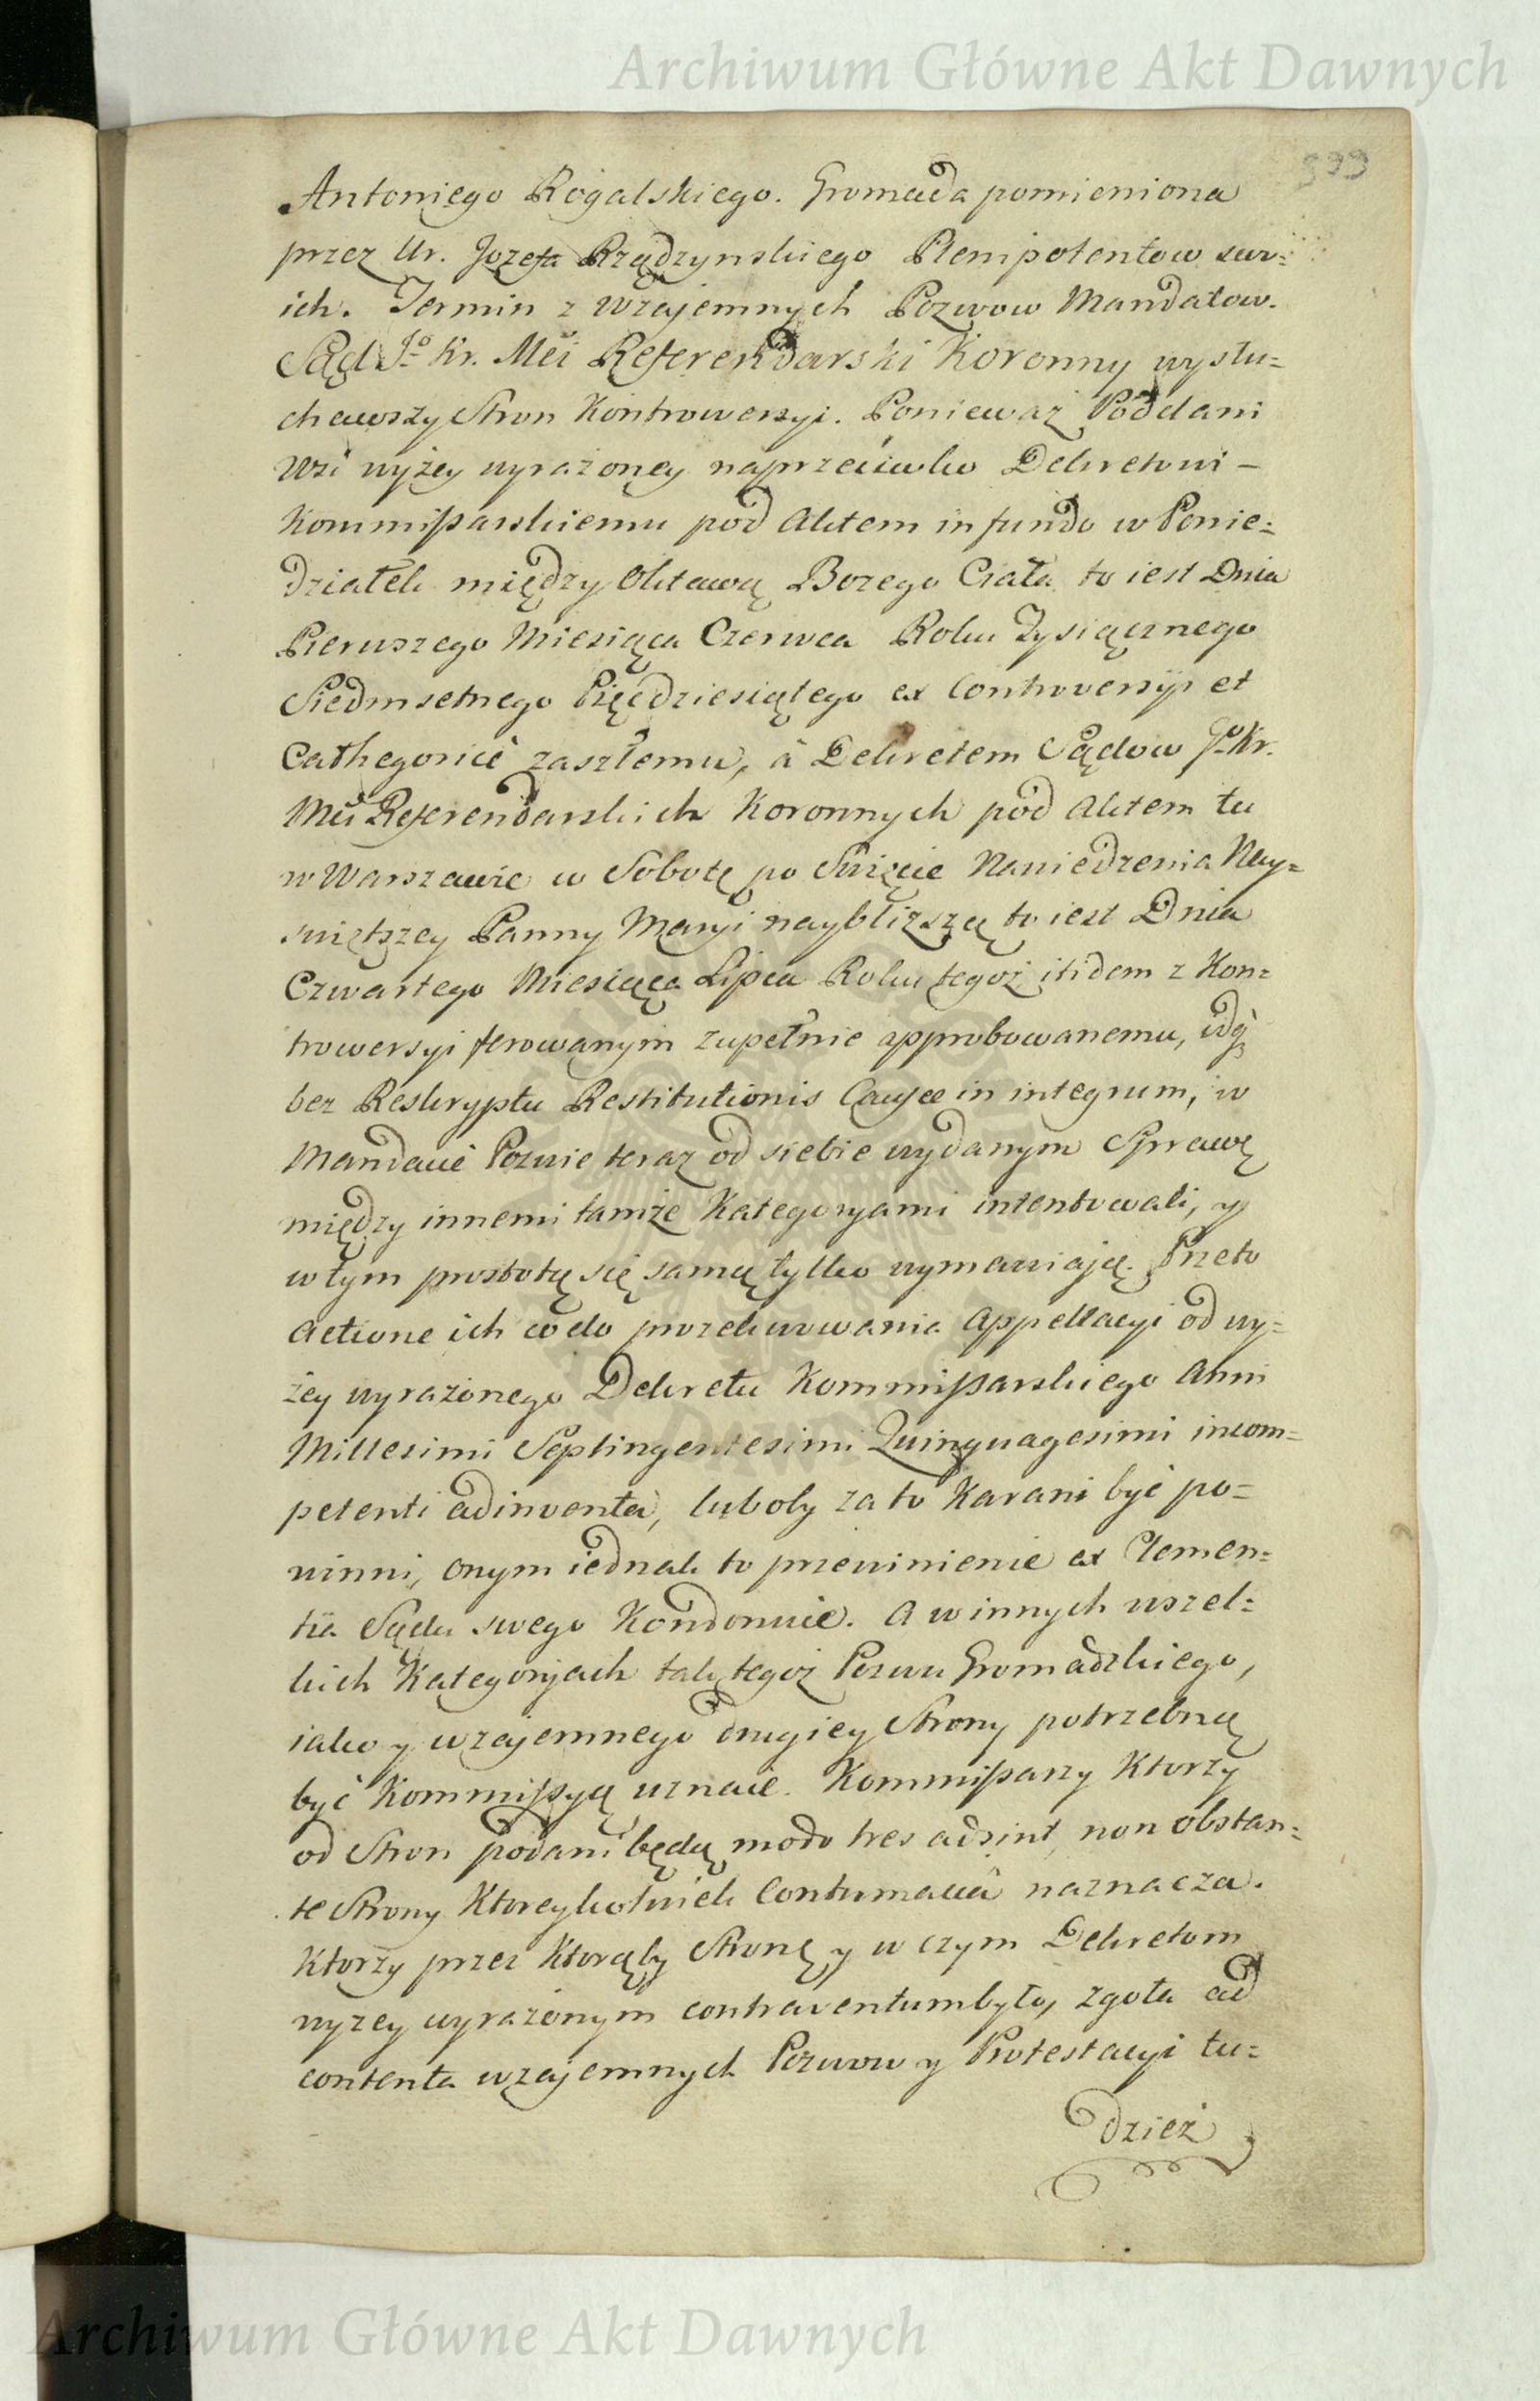 Archiwum Główne Akt Dawnych
Antoniego Rogalskiego. Gromada pomieniona
przez Ur. Jozefa Rządzynskiego Plenipotentow swo=
ich. Termin z wzajemnych Pozwow Mandatow.
Sąd Jº Kr. Mći Referendarski Koronny wysłu=
chawszy Stron Kontrowersyi. Ponieważ Poddani
Wsi wyżey wyrażoney naprzeciwko Dekretowi –
Kommissarskiemu pod Aktem in fundo w Ponie=
działek między Oktawą Bozego Ciała to iest Dnia
Pierwszego Miesiąca Czerwca Roku Tysiącznego
Siedmsetnego Pięćdziesiątego ex Controversijs et
Cathegoricè zaszłemu, à Dekretem Sądow Jº Kr.
Mći Referendarskich Koronnych pod Aktem tu
w Warszawie w Sobotę po Swięcie Nawiedzenia Nay=
swiętszey Panny Maryi naybliższą to iest Dnia
Czwartego Miesiąca Lipca Roku tegoż itidem z Kon=
trowersyi ferowanym zupełnie approbowanemu, idą
bez Reskryptu Restitutionis Causæ in integrum, w
Mandacie Pozwie teraz od siebie wydanym Sprawę
między innemi tamże Kategoryami intentowali, y
w tym prostotą się samą tylko wymawiają. Przeto
Actione ich co do prozekwowania Appellacyi od wy=
żey wyrażonego Dekretu Kommissarskiego Anni
Millesimi Septingentesimi Quinquagesimi incom=
petenti adinventa, luboby za to Karani być po=
winni, onym iednak to przewinienie ex Clemen=
tia Sądu swego Kondonuie. A w innych wszel=
kich Kategoryach tak tegoż Pozwu Gromadzkiego,
iako y wzajemnego drugiey Strony potrzebną
być Kommissyą uznaie. Kommissarzy Ktorzy
od Stron podani będą modo tres adsint, non obstan=
te Strony Ktoreykolwiek Contumaciâ naznacza.
Ktorzy przez Ktorąby Stronę y w czym Dekretom
wyzey wyrażonym contraventum było, zgoła ad
contenta wzajemnych Pozwow y Protestacyi tu=
dzież
Archiwum Główne Akt Dawnych